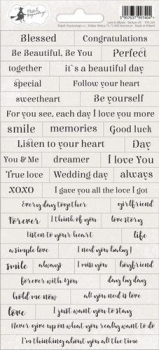 Blessed Congratulations
Be Beautiful, Be You Perfect
together it's a beautiful day
special Follow your heart
sweetheart Be yourself
For you see, each day I love you more
smile memories Good luck
Listen to your heart Day
You & Me dreamer I love You
True love Wedding Day always
XOXO I gave you all the love I got
every day together girlfriend
Forever I think of you love story
listen to your heart life
a simple love I need you baby
smile always I miss you boyfriend
forever with you day by day
hold me now all you need is love
love I just want you to stay
Never give up on what you really want to do
I'm thinking about you all the time